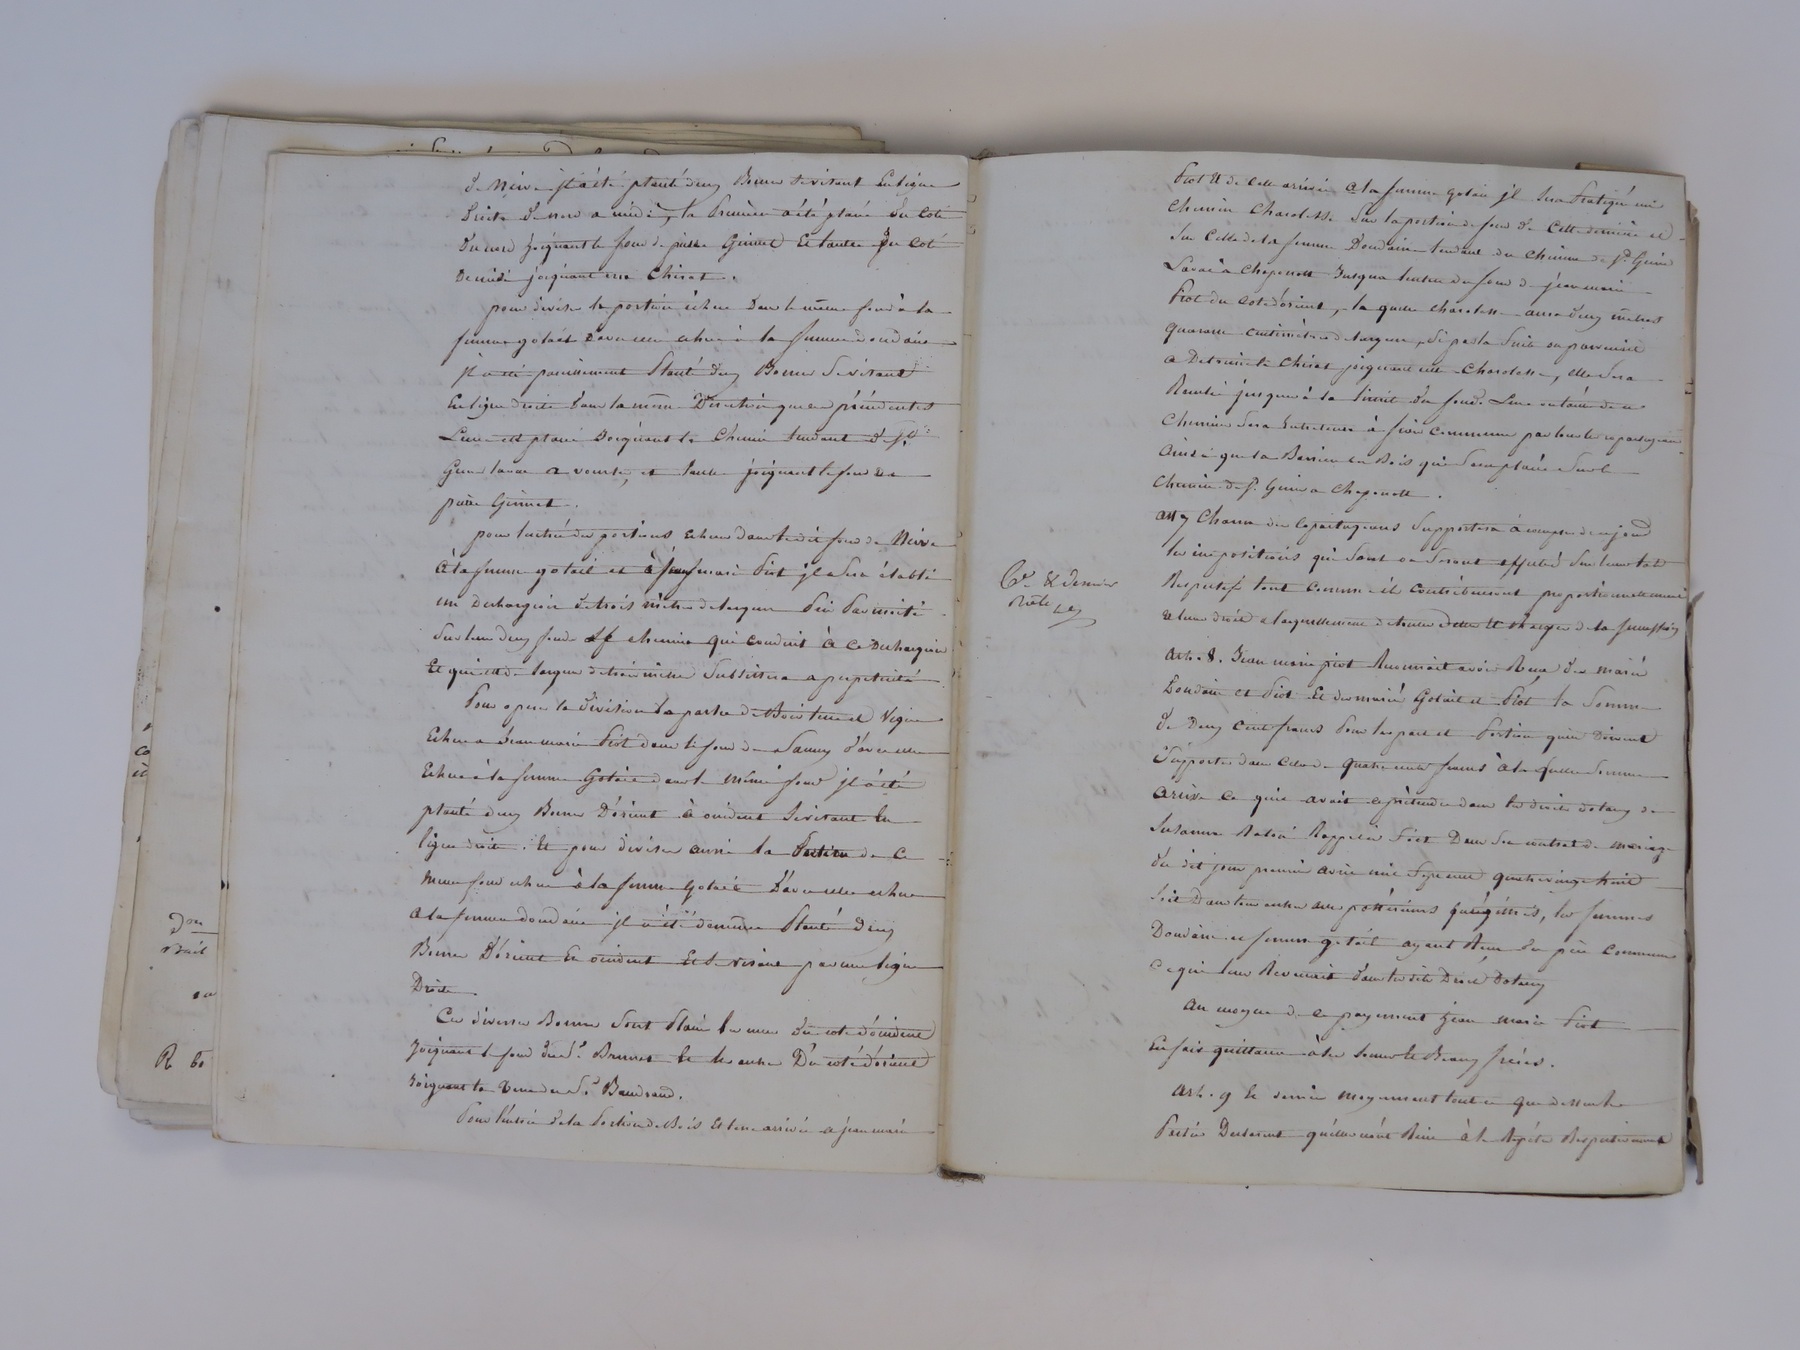 de Nèvre il a été planté deux Bornes se visant En ligne
droite de nord a midi, la Première a été placée du Coté
du nord joignant le fond de pierre Guinet Et l'autre du Coté
de midi joignant un Chirat.
pour diviser la portion échue dans le même fond à la
femme gotail d'avec celle echue à la femme doudain
il a été pareillement Planté deux Bornes se visant
En ligne droite dans la même Direction que les précédentes
L'une est placée joignant le Chemin tendant de St
Genis laval a vourles, et l'autre joignant le fond de
pierre Guinet.
pour l'entrée des portions echues dans le dit fond de Nèvre
à la femme gotail et à jean marie Piot il sera établi
un Dechargeoir de trois mètres de largeur Pris Par moitié
Sur leurs deux fonds le chemin qui conduit à ce Dechargeoir
Et qui est de largeur de trois mètres Subsistera a perpétuité
Pour operer la division de la partie de Bois terre et Vigne
Echue a Jean marie Piot dans le fond de d'avec celle
Echue à la femme Gotail dans le même fond il a été
planté deux Bornes D'orient à occident se visant En
ligne droite. Et pour diviser aussi la Portion de Ce
même fond echue à la femme gotail D'avec celle echue
a la femme doudain il a été de même Planté deux
Bornes D'orient En occident Et se visant par une ligne
Droite
Ces diverses Bornes Sont Placées les unes du coté d'occident
joignant le fond du Sr. Brunet Et les autres Du coté d'orient
joignant la terre du Sr. Baudrand.
Pour l'entrée de la Portion de Bois Et terre arrivée a jean marie
Piot Et de celle arrivée a la femme gotail il sera Pratiqué un
Chemin Charolesse Sur la portion de fond de Cette dernière et
Sur Celle de la femme Doudain tendant du chemin de St. Genis
Laval à Chaponost Jusqu'a l'entrée du fond de jean marie
Piot du coté d'orient, la quelle charolesse aura deux mètres
quarante centimètres de largeur, Si par la Suite on parvenait
a Detruire le Chirat joignant cette Charolesse, elle Sera
Reculée jusques à la limite du fond. L'entretien de ce
Chemin Sera à frais communs par tous les copartageans
Ainsi que la Barrière en Bois qui Sera placée Sur le
Chemin de St. Genis a Chaponost.
Art 7 Chacun des Copartageans Supportera à compter de ce jour
les impositions qui Sont ou Seront Sur leurs lots
Respectifs tout comme ils contribueront proportionnellement
a leurs droits a l'acquittement de toutes dettes Et charges de la Succession
Art. 8. Jean marie piot Reconnait avoir Reçu des mariés
Doudain et Piot Et des mariés Gotail et Piot la Somme
de Deux Cent francs Pour les part et Portion qu'ils Doivent
Supporter dans Celle de quatre cents francs à la quelle Somme
arrive ce qu'il avait a prétendre dans les droits dotaux de
Susanne Ratié Rappelés Soit Dans Son contrat de mariage
du dit jour premier mil Sept cent quatre vingt huit
Soit Dans tous autres actes postérieurs, les femmes
Doudain et femme gotail ayant Reçu Du père commun
Ce qui leur Revenait dans les dits Droits Dotaux
Au moyen de ce payement Jean marie Piot
En fait quittance à ses Soeurs Et Beaux frères.
Art. 9 Et dernier Moyennant tout ce que dessus les
Parties Declarent qu'elles n'ont Rien à se Répéter Respectivement
6e. & dernier
rôle
Don
Bail
R 60